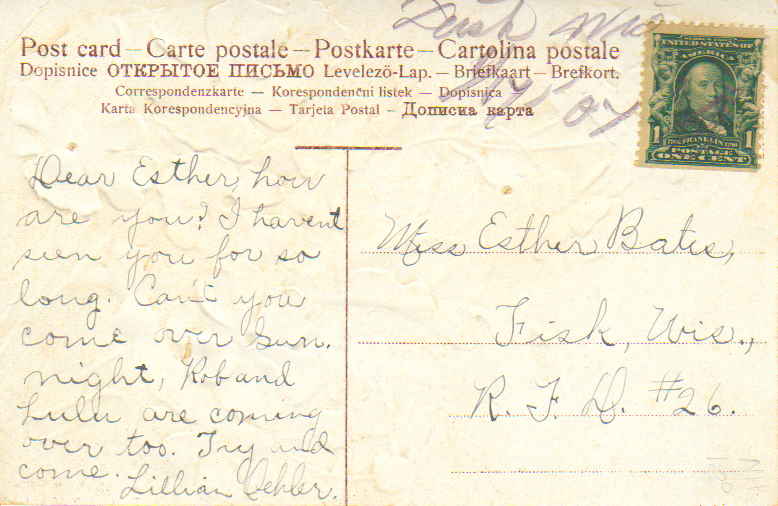 Fisk Wis
07
Post card – Carte postale – Postkarte – Cartolina postale
Dopisnice ОТКРЫТОЕ ПИСЬМО Levelező-Lap. – Briefkaart – Brefkort.
Correspondenzkarte — Korespondenčni listek — Dopisnica
Karta Korespondencyjna — Tarjeta Postal — Дописна карта
UNITED STATES OF
AMERICA
1 1
FRANKLIN
POSTAGE
ONE CENT
Dear Esther, how
are you? I havent
seen you for so
long. Can't you
come over Sun.
night, Rob and
Lulu are coming
over too. Try and
come.
Lillian Oehler.
Miss Esther Bates,
Fisk, Wis.,
R. F. D. #26.